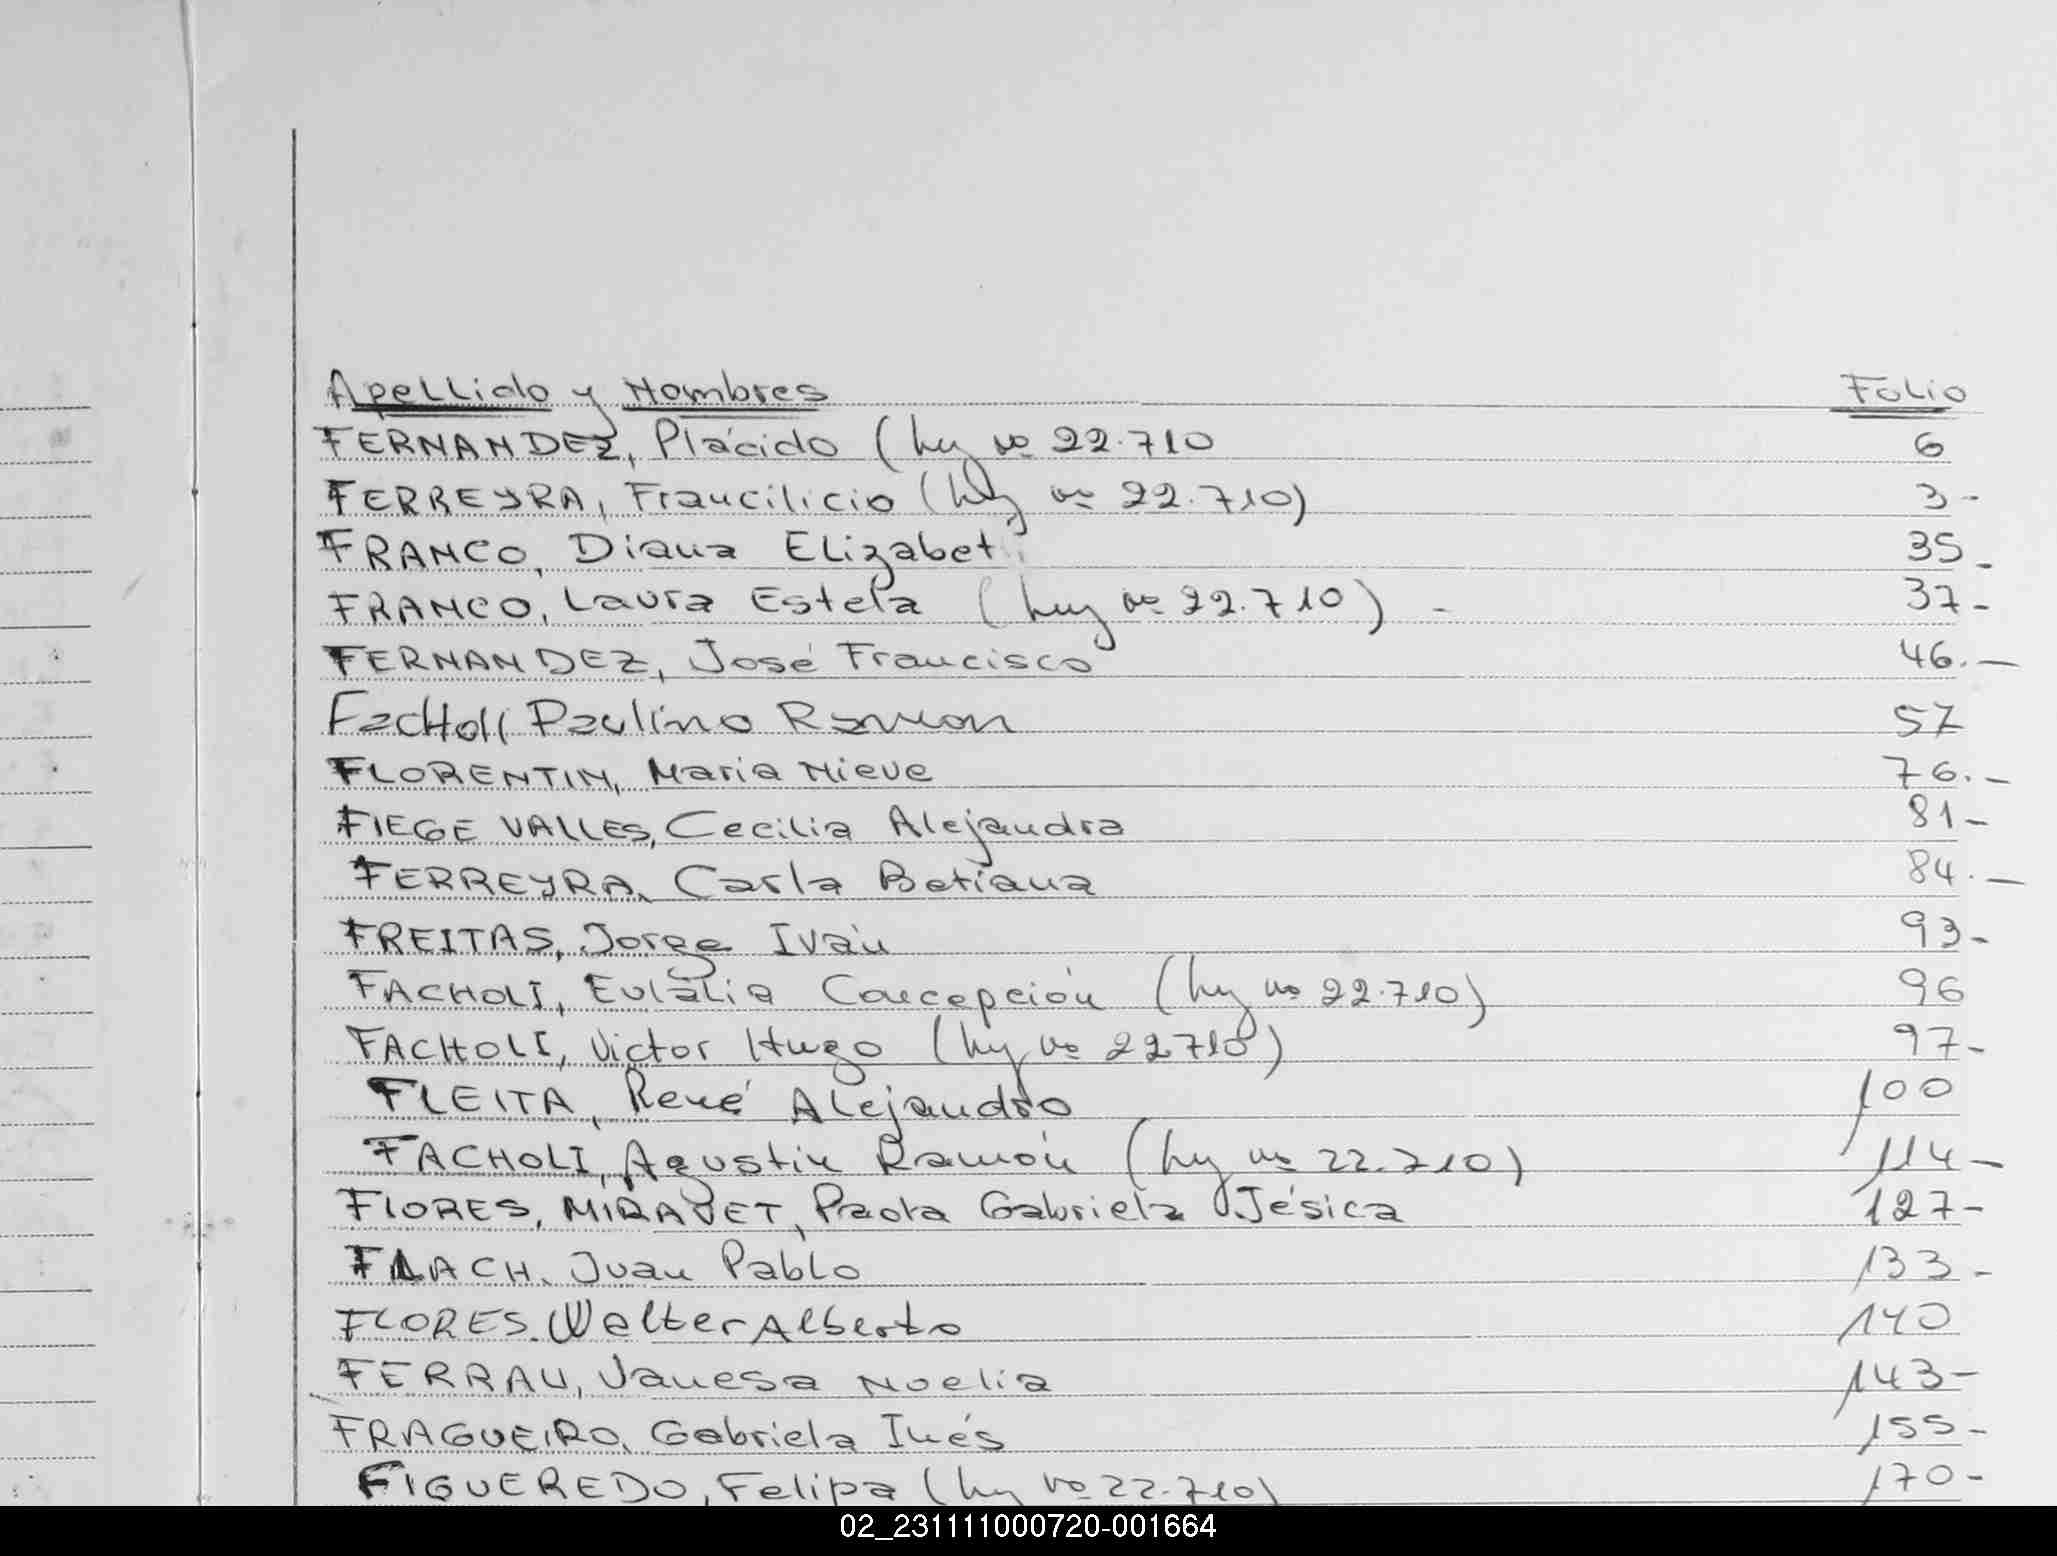 Apellido y Nombres Folio
FERNANDEZ, Plácido (ley nº 22.710 6
FERREYRA, Francilicio (ley nº 22.710) 3-
FRANCO, Diana Elizabet 35-
FRANCO, Laura Estela (ley nº 22.710) - 37-
FERNANDEZ, José Francisco 46.-
FacHoli Paulino Ramon 57
FLORENTIN, Maria Nieve 76.-
FIEGE VALLES, Cecilia Alejandra 81-
FERREYRA, Carla Betiana 84.-
FREITAS, Jorge Iván 93-
FACHOLI, Eulalia Concepción (ley nº 22.710) 96
FACHOLI, Victor Hugo (ley nº 22710) 97-
FLEITA, René Alejandro 100
FACHOLI, Agustin Ramón (ley nº 22.710) 114-
FlORES, MIRABET, Paola Gabriela Jésica 127-
FLACH, Juan Pablo 133-
FLORES. Walter Alberto 140
FERRAU, Vanesa Noelia 143-
FRAGUEIRO, Gabriela Inés 155-
FIGUEREDO, Felipa (ley nº 22.710) 170-
02_231111000720-001664